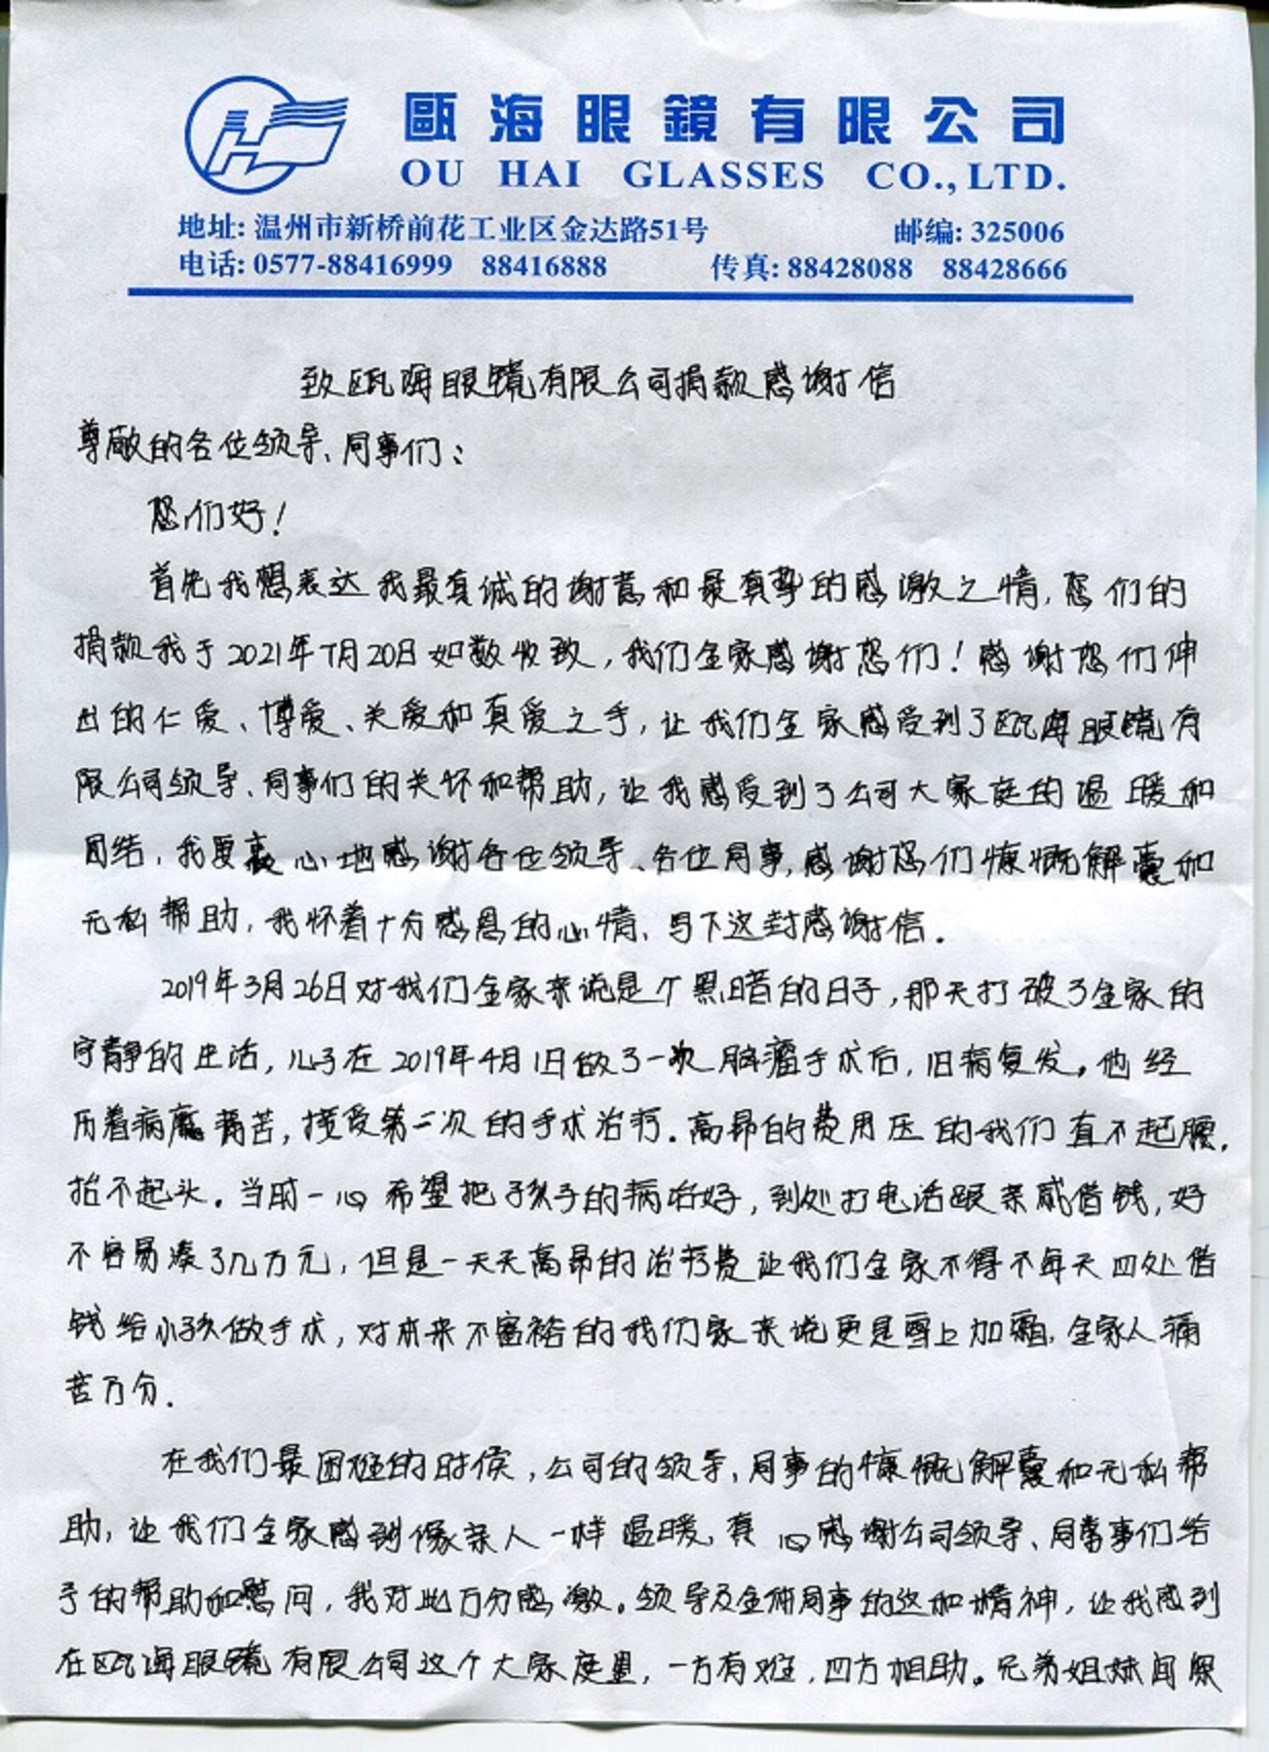 甌海眼鏡有限公司
OU HAI GLASSES CO., LTD.
地址: 温州市新桥前花工业区金达路51号 邮编: 325006
电话: 0577-88416999 88416888 传真: 88428088 88428666
致瓯海眼镜有限公司捐款感谢信
尊敬的各位领导、同事们：
您们好！
首先我想表达我最真诚的谢意和最真挚的感激之情，您们的
捐款我于2021年7月20日如数收致，我们全家感谢您们！感谢您们伸
出的仁爱、博爱、关爱和真爱之手，让我们全家感受到了瓯海眼镜有
限公司领导、同事们的关怀和帮助，让我感受到了公司大家庭的温暖和
团结，我要衷心地感谢各位领导、各位同事，感谢您们慷慨解囊和
无私帮助，我怀着十分感恩的心情、写下这封感谢信.
2019年3月26日对我们全家来说是个黑暗的日子，那天打破了全家的
宁静的生活，儿子在2019年4月1日做了一次脑瘤手术后，旧病复发。他经
历着病魔痛苦，接受第二次的手术治疗.高昂的费用压的我们直不起腰，
抬不起头。当时一心希望把孩子的病治好，到处打电话跟亲戚借钱，好
不容易凑了几万元，但是一天天高昂的治疗费让我们全家不得不每天四处借
钱给小孩做手术，对本来不富裕的我们家来说更是雪上加霜，全家人痛
苦万分.
在我们最困难的时候，公司的领导、同事的慷慨解囊和无私帮
助，让我们全家感到像亲人一样温暖，真心感谢公司领导、同事们给
予的帮助和慰问，我对此万分感激。领导及全体同事的这和精神，让我感到
在瓯海眼镜有限公司这个大家庭里，一方有难，四方相助。兄弟姐妹间